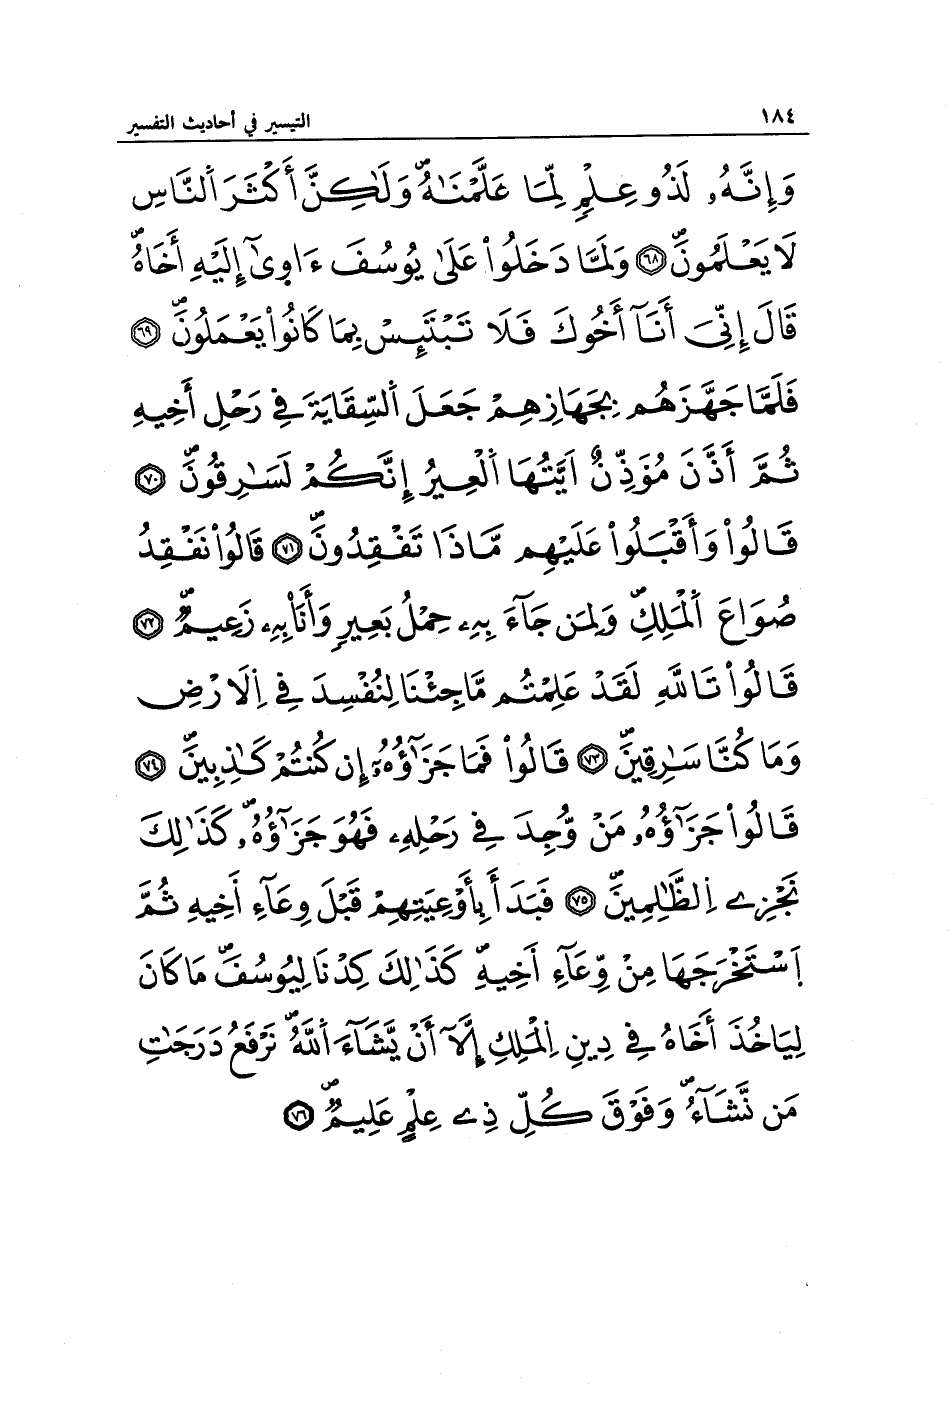 ١٨٤ التيسير في أحاديث التفسير
وَإِنَّهُۥ لَذُو عِلْمٍ لِّمَا عَلَّمْنَٰهُۖ وَلَٰكِنَّ أَكْثَرَ اَ۬لنَّاسِ
لَا يَعْلَمُونَۖ ٦٨ وَلَمَّا دَخَلُواْ عَلَىٰ يُوسُفَ ءَاو۪ىٰٓ إِلَيْهِ أَخَاهُۖ
قَالَ إِنِّىَ أَنَآ أَخُوكَ فَلَا تَبْتَئِسْ بِمَا كَانُواْ يَعْمَلُونَۖ ٦٩
فَلَمَّا جَهَّزَهُم بِجَهَازِهِمْ جَعَلَ اَ۬لسِّقَايَةَ فِے رَحْلِ أَخِيهِ
ثُمَّ أَذَّنَ مُؤَذِّنٌ اَيَّتُهَا اَ۬لْعِيرُ إِنَّكُمْ لَسَٰرِقُونَۖ ٧٠
قَالُواْ وَأَقْبَلُواْ عَلَيْهِم مَّاذَا تَفْقِدُونَۖ ٧١ قَالُواْ نَفْقِدُ
صُوَاعَ اَ۬لْمَلِكِۖ وَلِمَن جَآءَ بِهِۦ حِمْلُ بَعِيرٍ وَأَنَا۠ بِهِۦ زَعِيمٌۖ ٧٢
قَالُواْ تَاللَّهِ لَقَدْ عَلِمْتُم مَّا جِئْنَا لِنُفْسِدَ فِے اِ۬لَارْضِ
وَمَا كُنَّا سَٰرِقِينَۖ ٧٣ قَالُواْ فَمَا جَزَٰٓؤُهُۥٓ إِن كُنتُمْ كَٰذِبِينَۖ ٧٤
قَالُواْ جَزَٰٓؤُهُۥ مَنْ وُّجِدَ فِے رَحْلِهِۦ فَهُوَ جَزَٰٓؤُهُۥۖ كَذَٰلِكَ
نَجْزِے اِ۬لظَّٰلِمِينَۖ ٧٥ فَبَدَأَ بِأَوْعِيَتِهِمْ قَبْلَ وِعَآءِ اَخِيهِ ثُمَّ
اَ۪سْتَخْرَجَهَا مِنْ وِّعَآءِ اَخِيهِۖ كَذَٰلِكَ كِدْنَا لِيُوسُفَۖ مَا كَانَ
لِيَاخُذَ أَخَاهُ فِے دِينِ اِ۬لْمَلِكِ إِلَّآ أَنْ يَّشَآءَ اَ۬للَّهُۖ نَرْفَعُ دَرَجَٰتِ
مَن نَّشَآءُۖ وَفَوْقَ كُلِّ ذِے عِلْمٍ عَلِيمٌۖ ٧٦